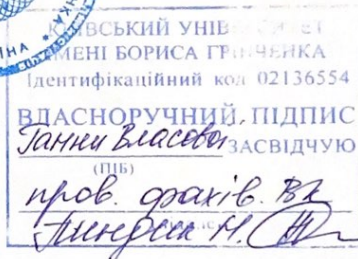 КИЇВСЬКИЙ УНІВЕРСИТЕТ
ІМЕНІ БОРИСА ГРІНЧЕНКА
Ідентифікаційний код 02136554
ВЛАСНОРУЧНИЙ ПІДПИС
Ганни Власової ЗАСВІДЧУЮ
(ПІБ)
пров. фахів. ВК